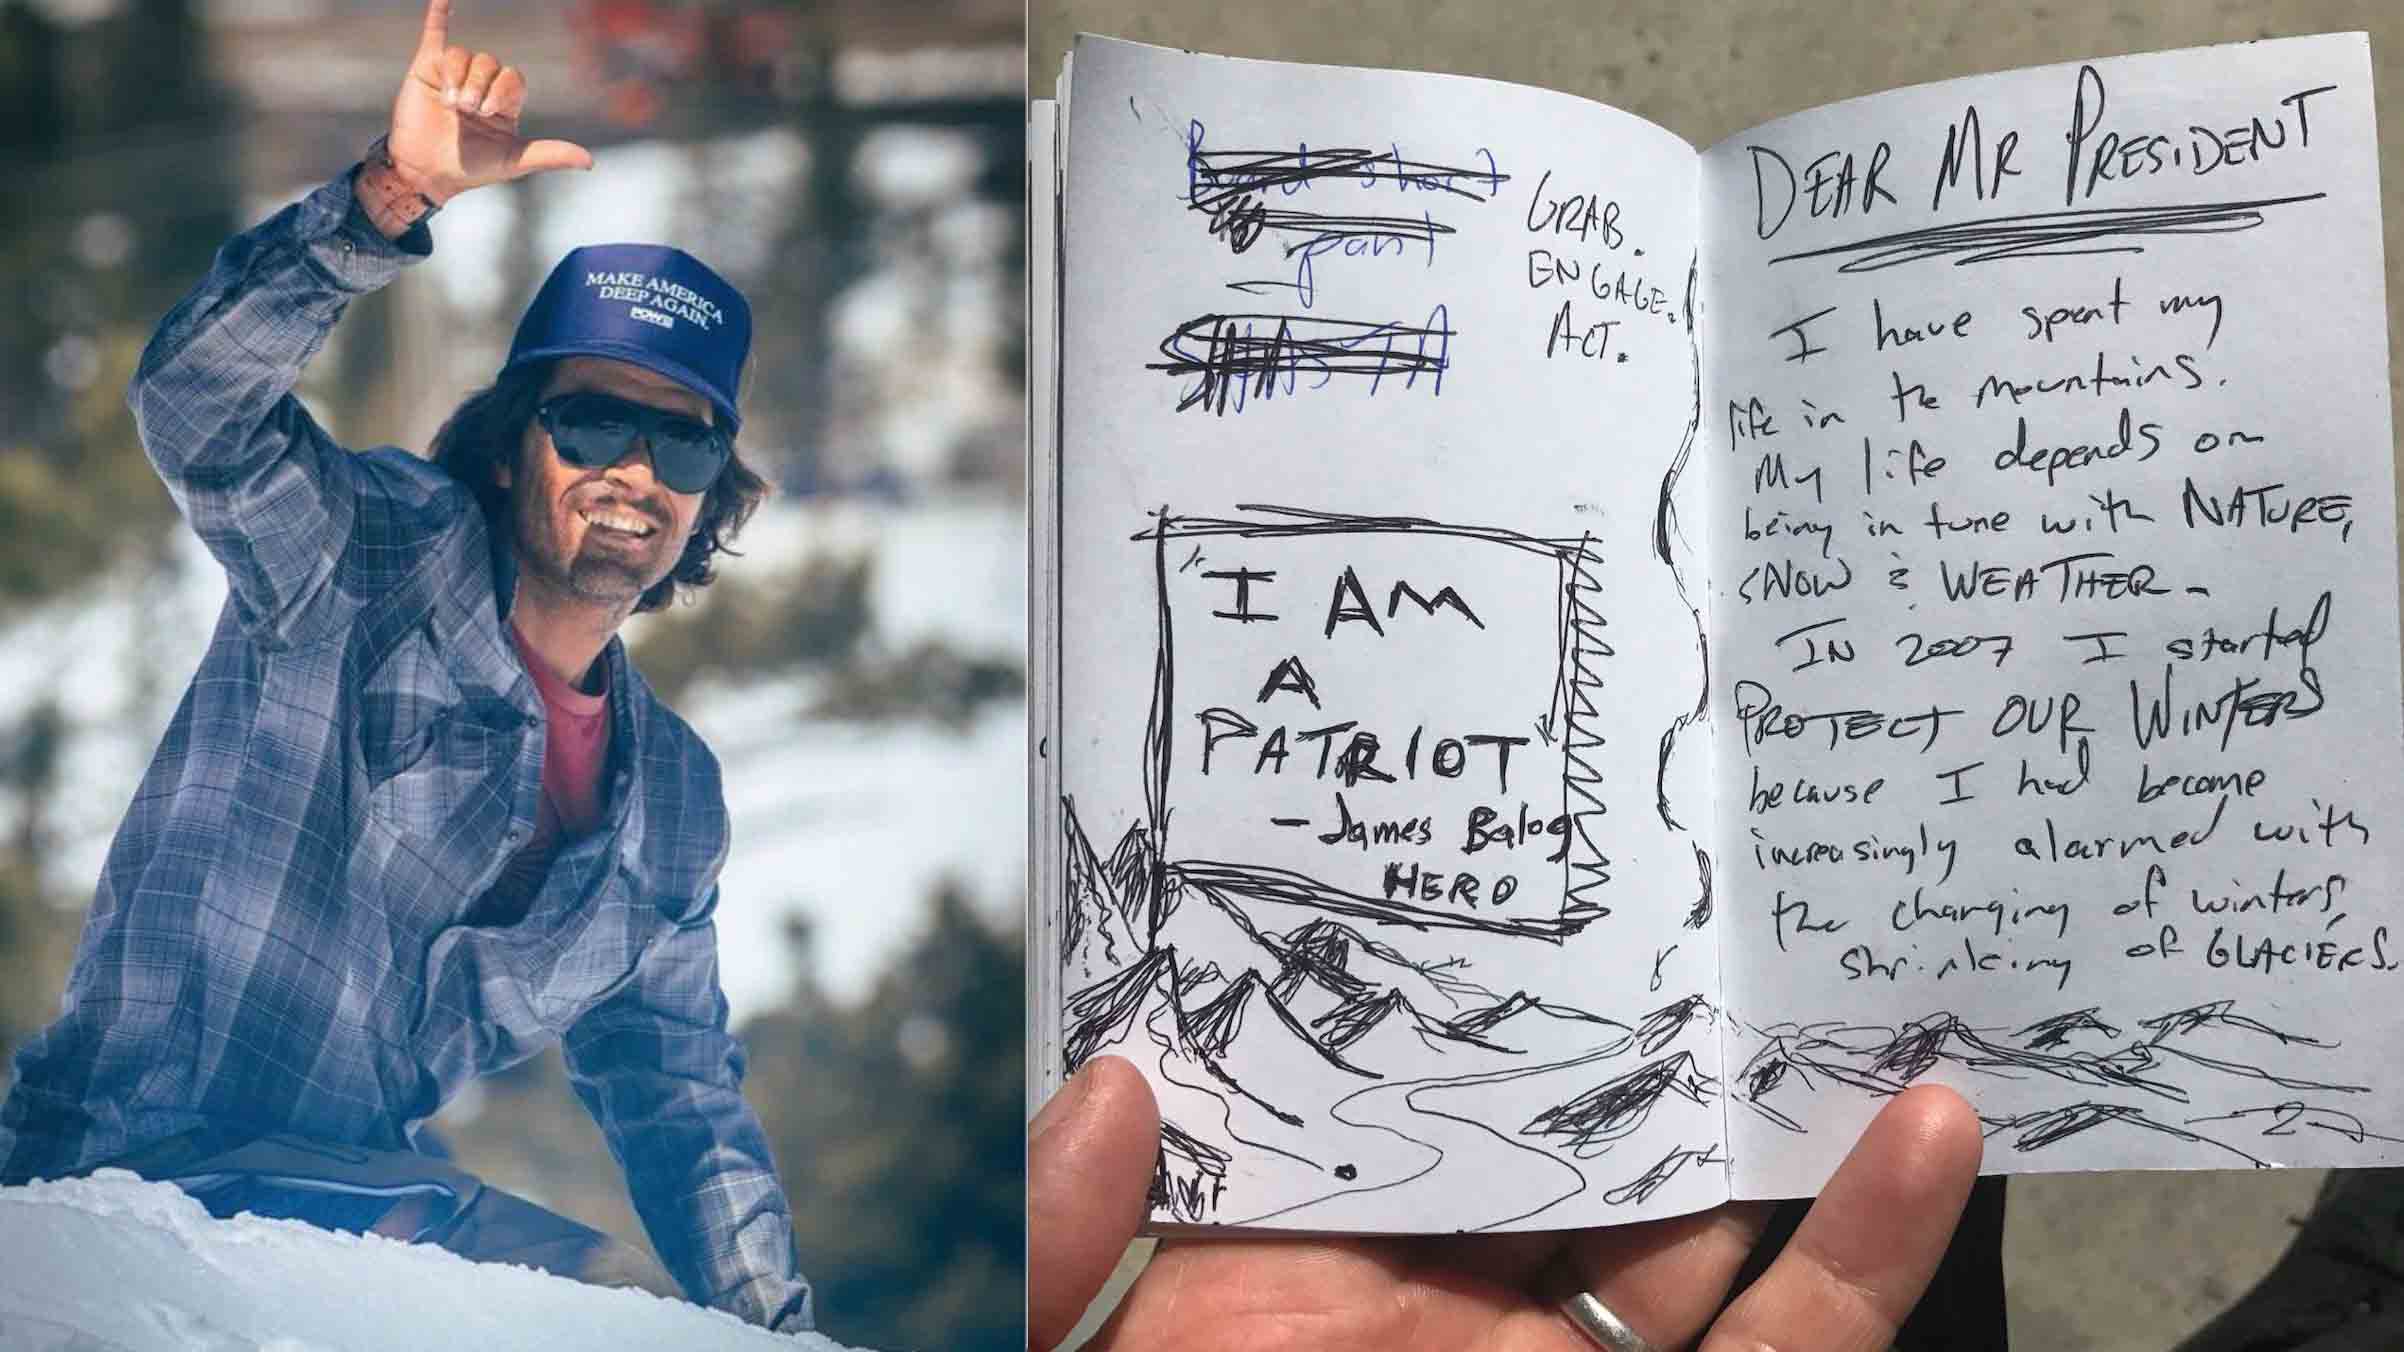 MAKE AMERICA
DEEP AGAIN.
POW
Board short
pant
GRAB.
ENGAGE.
ACT.
"I AM
A
PATRIOT"
- James Balog
HERO
DEAR MR PRESIDENT
I have spent my
life in the mountains.
My life depends on
being in tune with NATURE,
SNOW & WEATHER -
IN 2007 I started
PROTECT OUR WINTERS
because I had become
increasingly alarmed with
the changing of winters,
shrinking of GLACIERS.